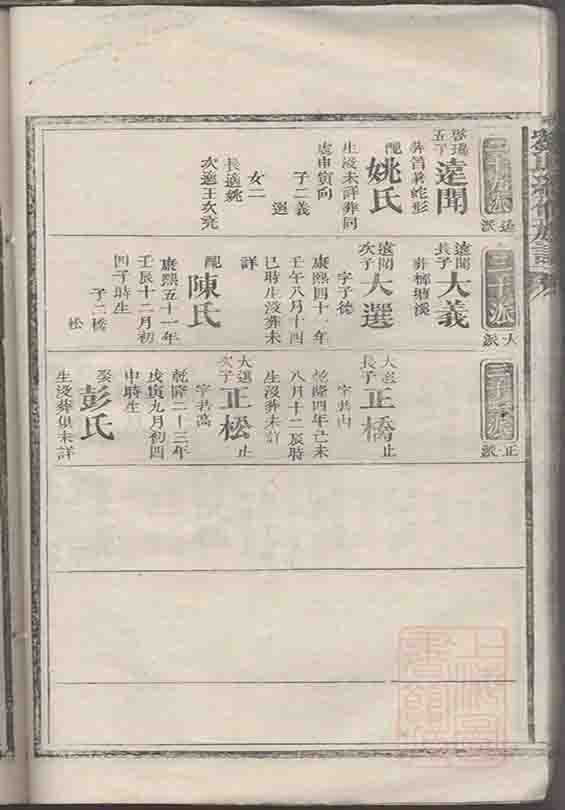 遠派
遠聞
姚氏
配
生沒未詳葬同
處申寅向
子二義
選
女二
長適姚
次適王次完
三十派
大派
遠聞
長子
大義
葬椰塘溪
遠聞
次子
大選
字子德
康熙四十一年
壬午八月十四
巳時生沒葬未
詳
配
陳氏
康熙五十一年
壬辰十二月初
四子時生
子二橋
松
正派
大選
長子
正橋
止
乾隆四年己未
八月十二辰時
生沒葬未詳
大選
次子
正松
止
字若喬
乾隆二十三年
戊寅九月初四
申時生
娶
彭氏
生沒葬俱未詳
上海圖書館藏